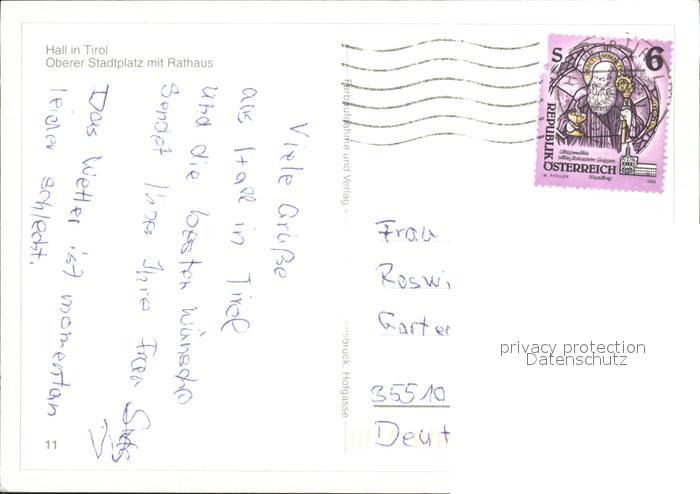 Hall in Tirol
Oberer Stadtplatz mit Rathaus
Viele Grüße
aus Hall in Tirol
und die besten Wünsche
Sendet Ihnen Ihre Frau
Das Wetter ist momentan
leider schlecht.
11
Farbaufnahme und Verlag
Hofgasse
S 6
REPUBLIK
ÖSTERREICH
W. PFEILER
1993
Frau
Roswi
Garte
35510
Deut
privacy protection
Datenschutz